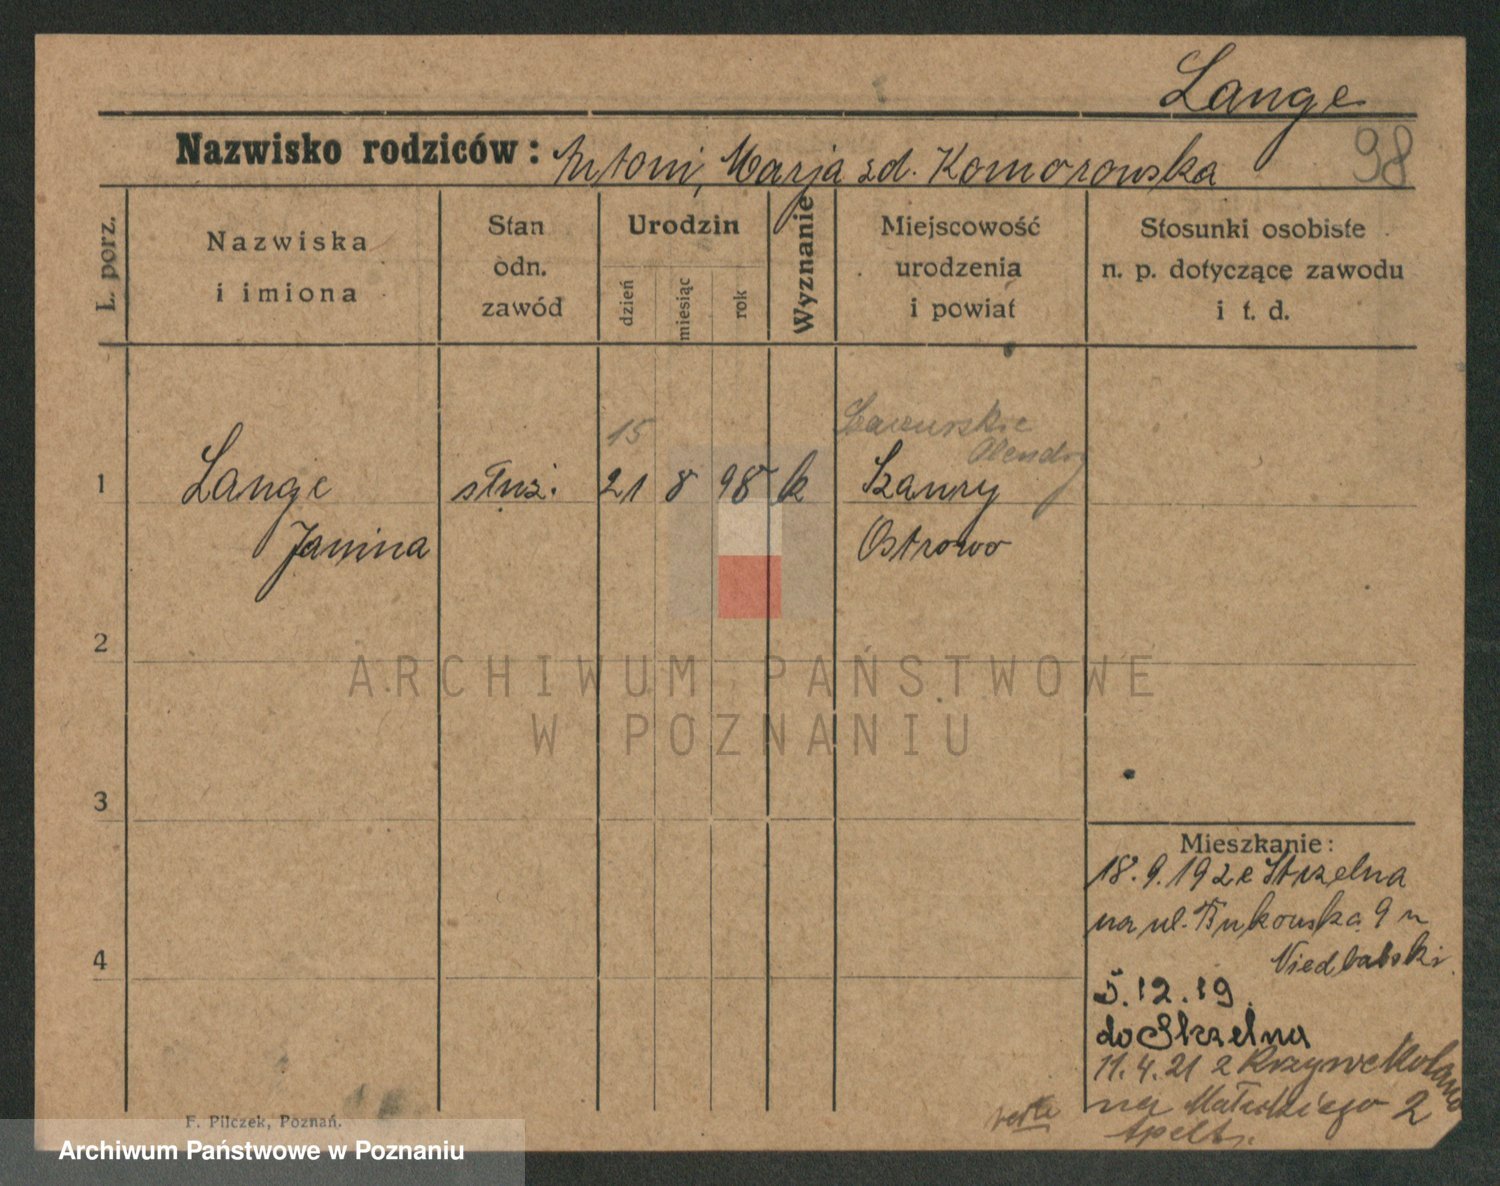 Lange
Nazwisko rodziców: Antoni, Marja zd. Komorowska
98
L. porz.
Nazwiska
i imiona
Stan
odn.
zawód
Urodzin
dzień
miesiąc
rok
Wyznanie
Miejscowość
urodzenia
i powiat
Stosunki osobiste
n. p. dotyczące zawodu
i t. d.
15
Olendry
1 Lange służ. 21 8 98 k Szamry
Janina Ostrowo
2
3
4
ARCHIWUM PAŃSTWOWE
W POZNANIU
Mieszkanie:
18.9.19 z Strzelna
na ul. Bukowska 9 u
Niedbalski
5.12.19.
do Strzelna
11.4.21 z Krzywe Kolano
na Małeckiego 2
Apelt
verte
F. Pilczek, Poznań.
Archiwum Państwowe w Poznaniu